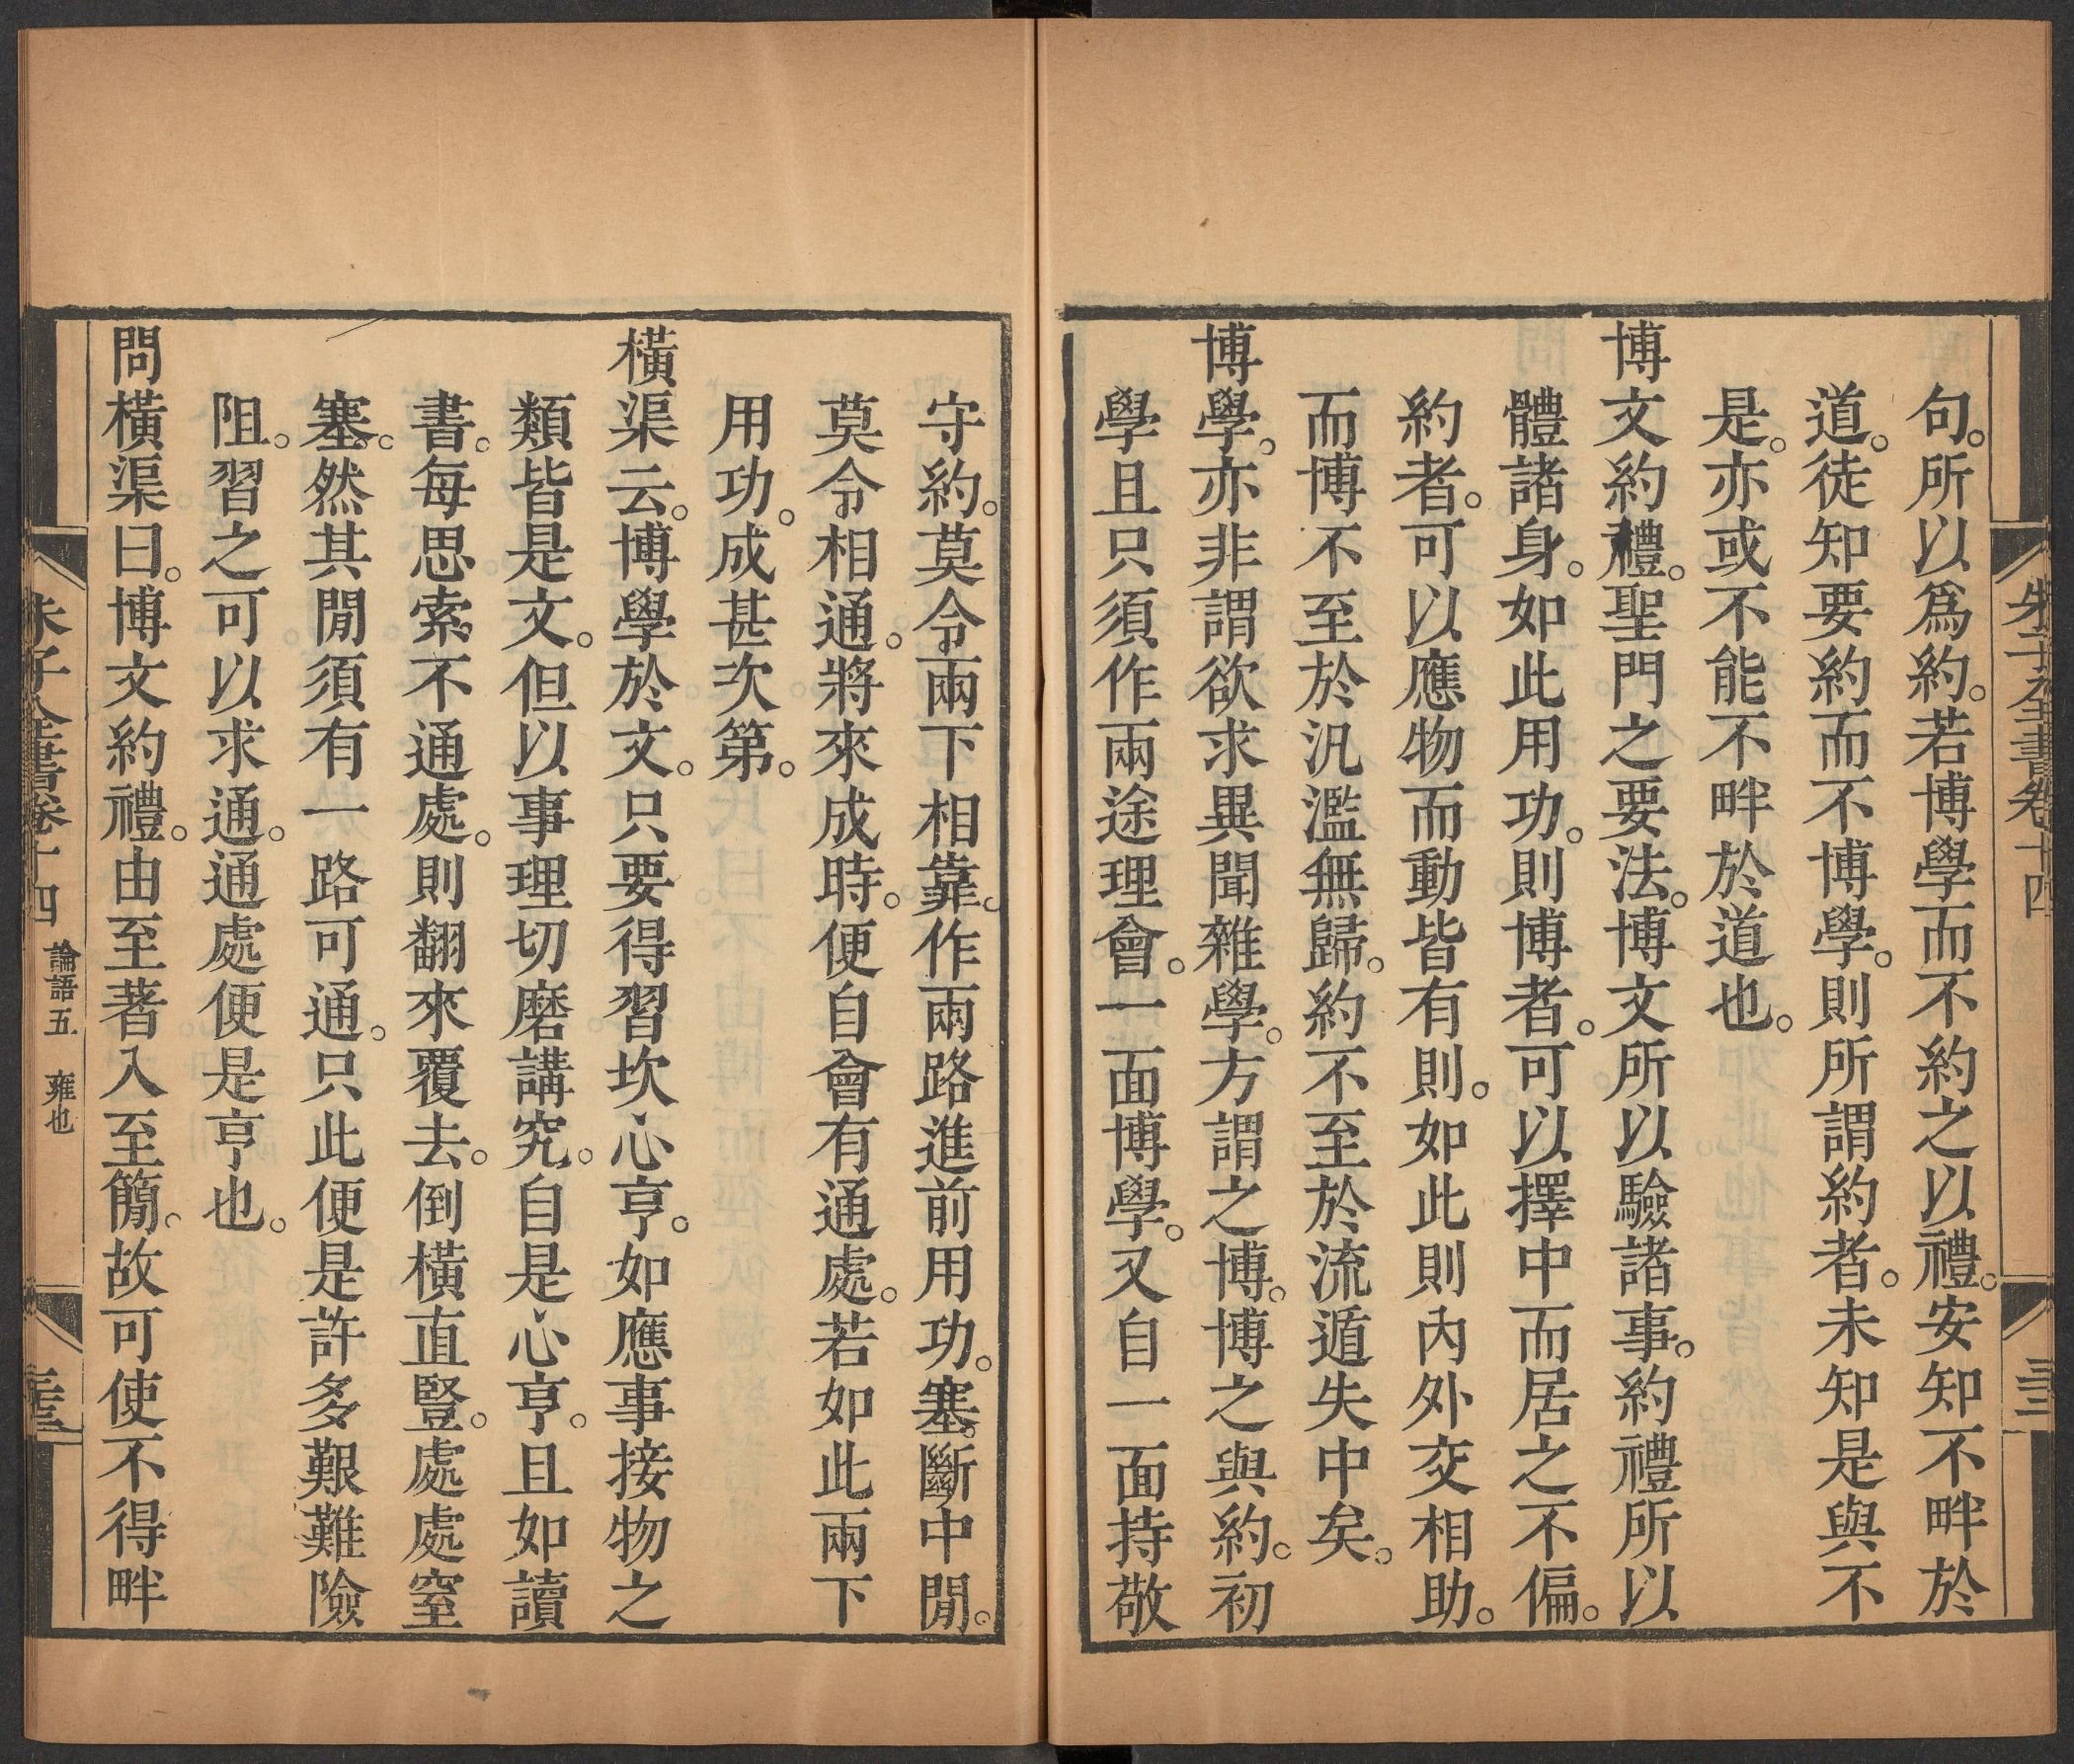 朱子全書卷十四
句。所以爲約。若博學而不約之以禮。安知不畔於
道。徒知要約而不博學。則所謂約者。未知是與不
是。亦或不能不畔於道也。
博文約禮。聖門之要法。博文所以驗諸事。約禮所以
體諸身。如此用功。則博者。可以擇中而居之不偏。
約者。可以應物而動皆有則。如此則內外交相助。
而博不至於汎濫無歸。約不至於流遁失中矣。
博學。亦非謂欲求異聞雜學。方謂之博。博之與約。初
學且只須作兩途理會。一面博學。又自一面持敬
守約。莫令兩下相靠。作兩路進前用功。塞斷中閒。
莫令相通。將來成時。便自會有通處。若如此兩下
用功。成甚次第。
橫渠云。博學於文。只要得習坎心亨。如應事接物之
類皆是文。但以事理切磨講究。自是心亨。且如讀
書。每思索不通處。則翻來覆去。倒橫直豎。處處窒
塞。然其閒須有一路可通。只此便是許多艱難險
阻。習之可以求通。通處便是亨也。
問橫渠曰。博文約禮。由至著入至簡。故可使不得畔
朱子全書卷十四 論語五 雍也